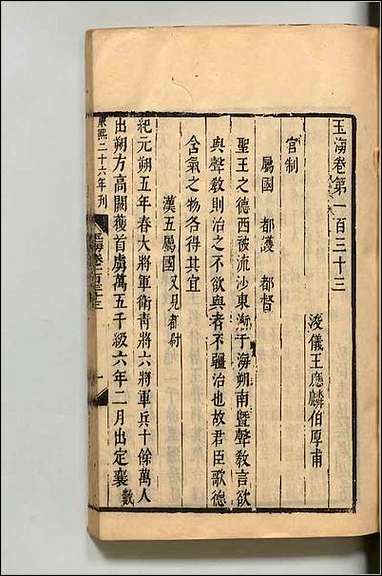 玉海卷第一百三十三
浚儀王應麟伯厚甫
官制
屬國 都護 都督
聖王之德西被流沙東漸于海朔南曁聲教言欲
與聲教則治之不欲與者不彊治也故君臣歌德
含氣之物各得其宜
漢五屬國又見都尉
紀元朔五年春大將軍衛靑將六將軍兵十餘萬人
出朔方高闕獲首虜萬五千級六年二月出定襄數
康熙二十六年刊
玉海卷一百三十三
一